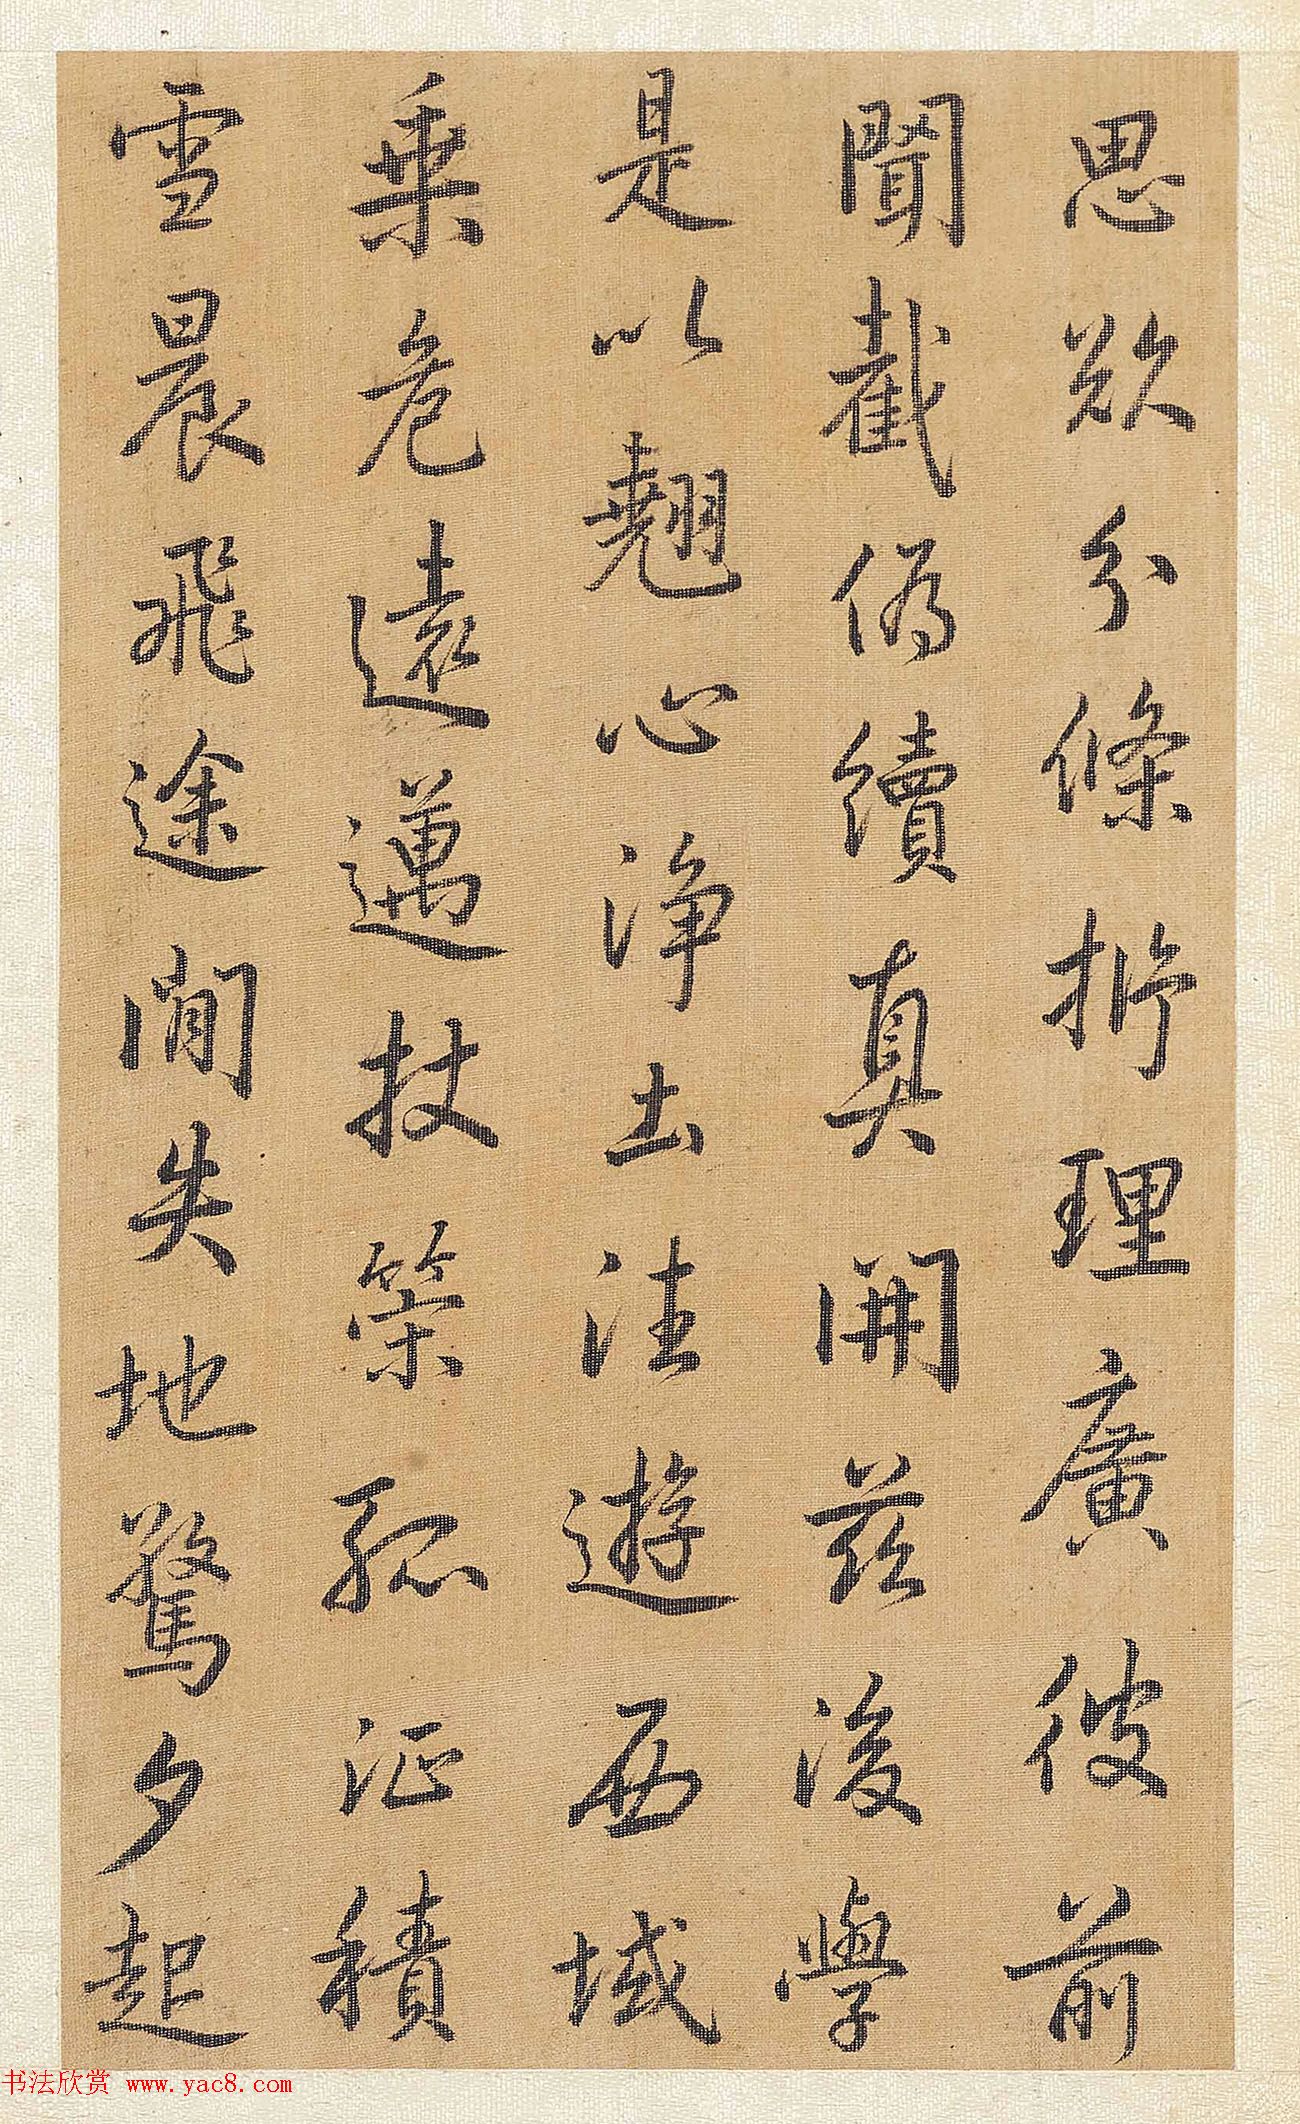 思欲分條析理廣彼前
聞截偽續真開茲後學
是以翹心淨土法遊西域
乘危遠邁杖策孤征積
雪晨飛途間失地驚夕起
书法欣赏 www.yac8.com